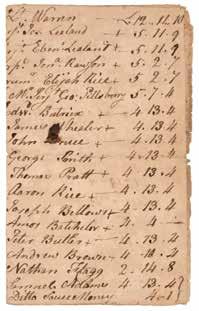 Lt Warren £12 . 11 . 10
Jos. Leland + 5 . 11 . 9
Eben Leland + 5 . 11 . 9
Jon Rawson + 5 . 2 . 7
Elijah Rice + 5 . 2 . 7
Geo. Pillsbury 5 . 7 . 4
+ 4 . 13 . 4
James Wheeler + 4 . 13 . 4
John + 4 . 13 . 4
George Smith + 4 . 13 . 4
Thomas Pratt + 4 . 13 . 4
Aaron Rice + 4 . 13 . 4
Joseph Bellows + 4 . 13 . 4
Amos Batchelor + 4 . 4 —
Peter Butler + 4 . 13 . 4
Andrew Brown + 4 . 13 . 4
Nathan Flagg 2 . 14 . 8
Samuel Adams 4 . 13 . 4
Ditto Sauce Money 4 . 1